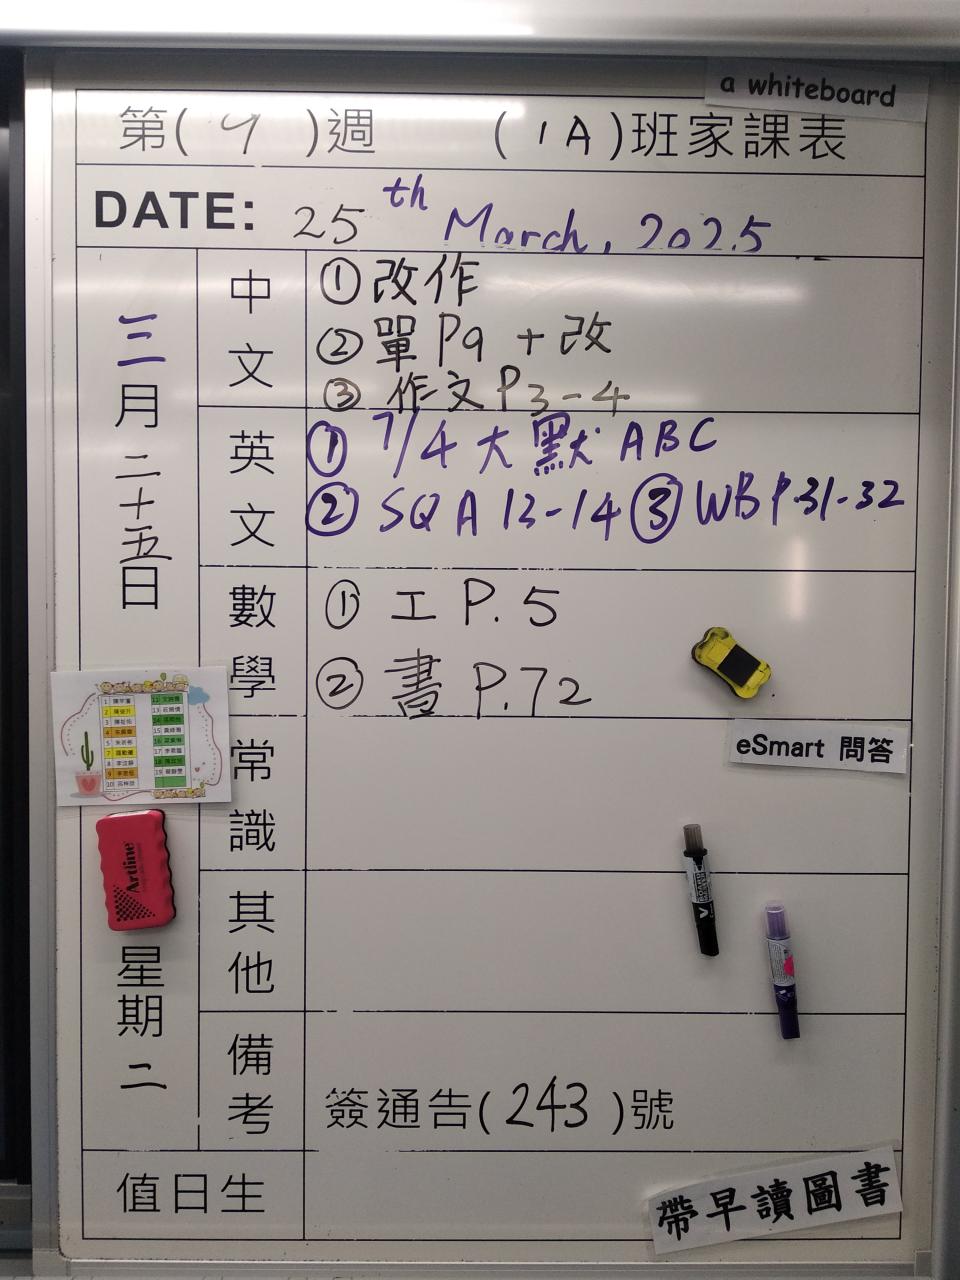 a whiteboard
第( 9 )週 ( 1A )班家課表
DATE: 25th March, 2025
三月二十五日
星期二
中文
①改作
②單P9 + 改
③作文P3-4
英文
① 7/4 大默 ABC
② SQA 13-14 ③ WB P.31-32
數學
① 工 P.5
② 書 P.72
常識
eSmart 問答
其他
備考
簽通告( 243 )號
值日生
帶早讀圖書
Artline